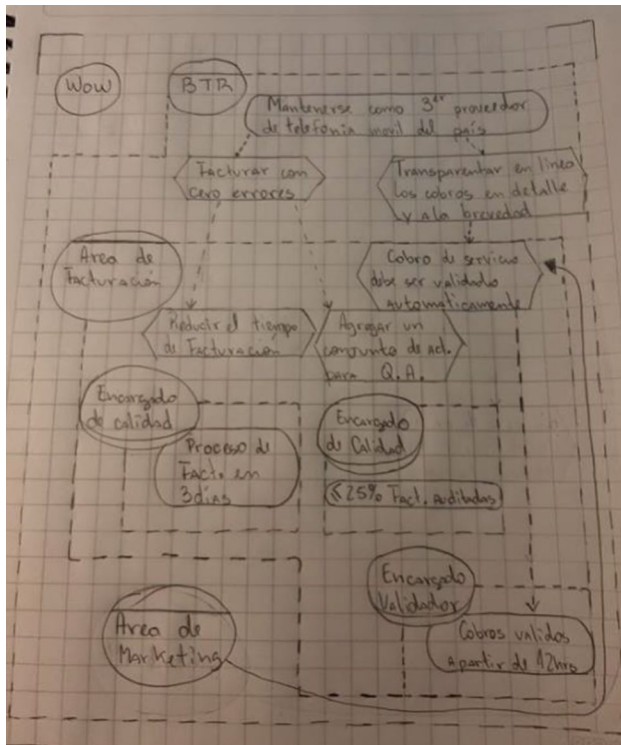 Wow
BTR
Mantenerse como 3er proveedor
de telefonía movil del país
Facturar con
cero errores
Transparentar en linea
los cobros en detalle
y a la brevedad
Area de
Facturación
Cobro de servicio
debe ser validado
automaticamente
Reducir el tiempo
de Facturación
Agregar un
conjunto de act.
para Q.A.
Encargado
de calidad
Proceso de
Fact. en
3 días
Encargado
de Calidad
≤ 25% Fact. auditadas
Encargado
Validador
Cobros validos
apartir de 12hrs
Area de
Marketing